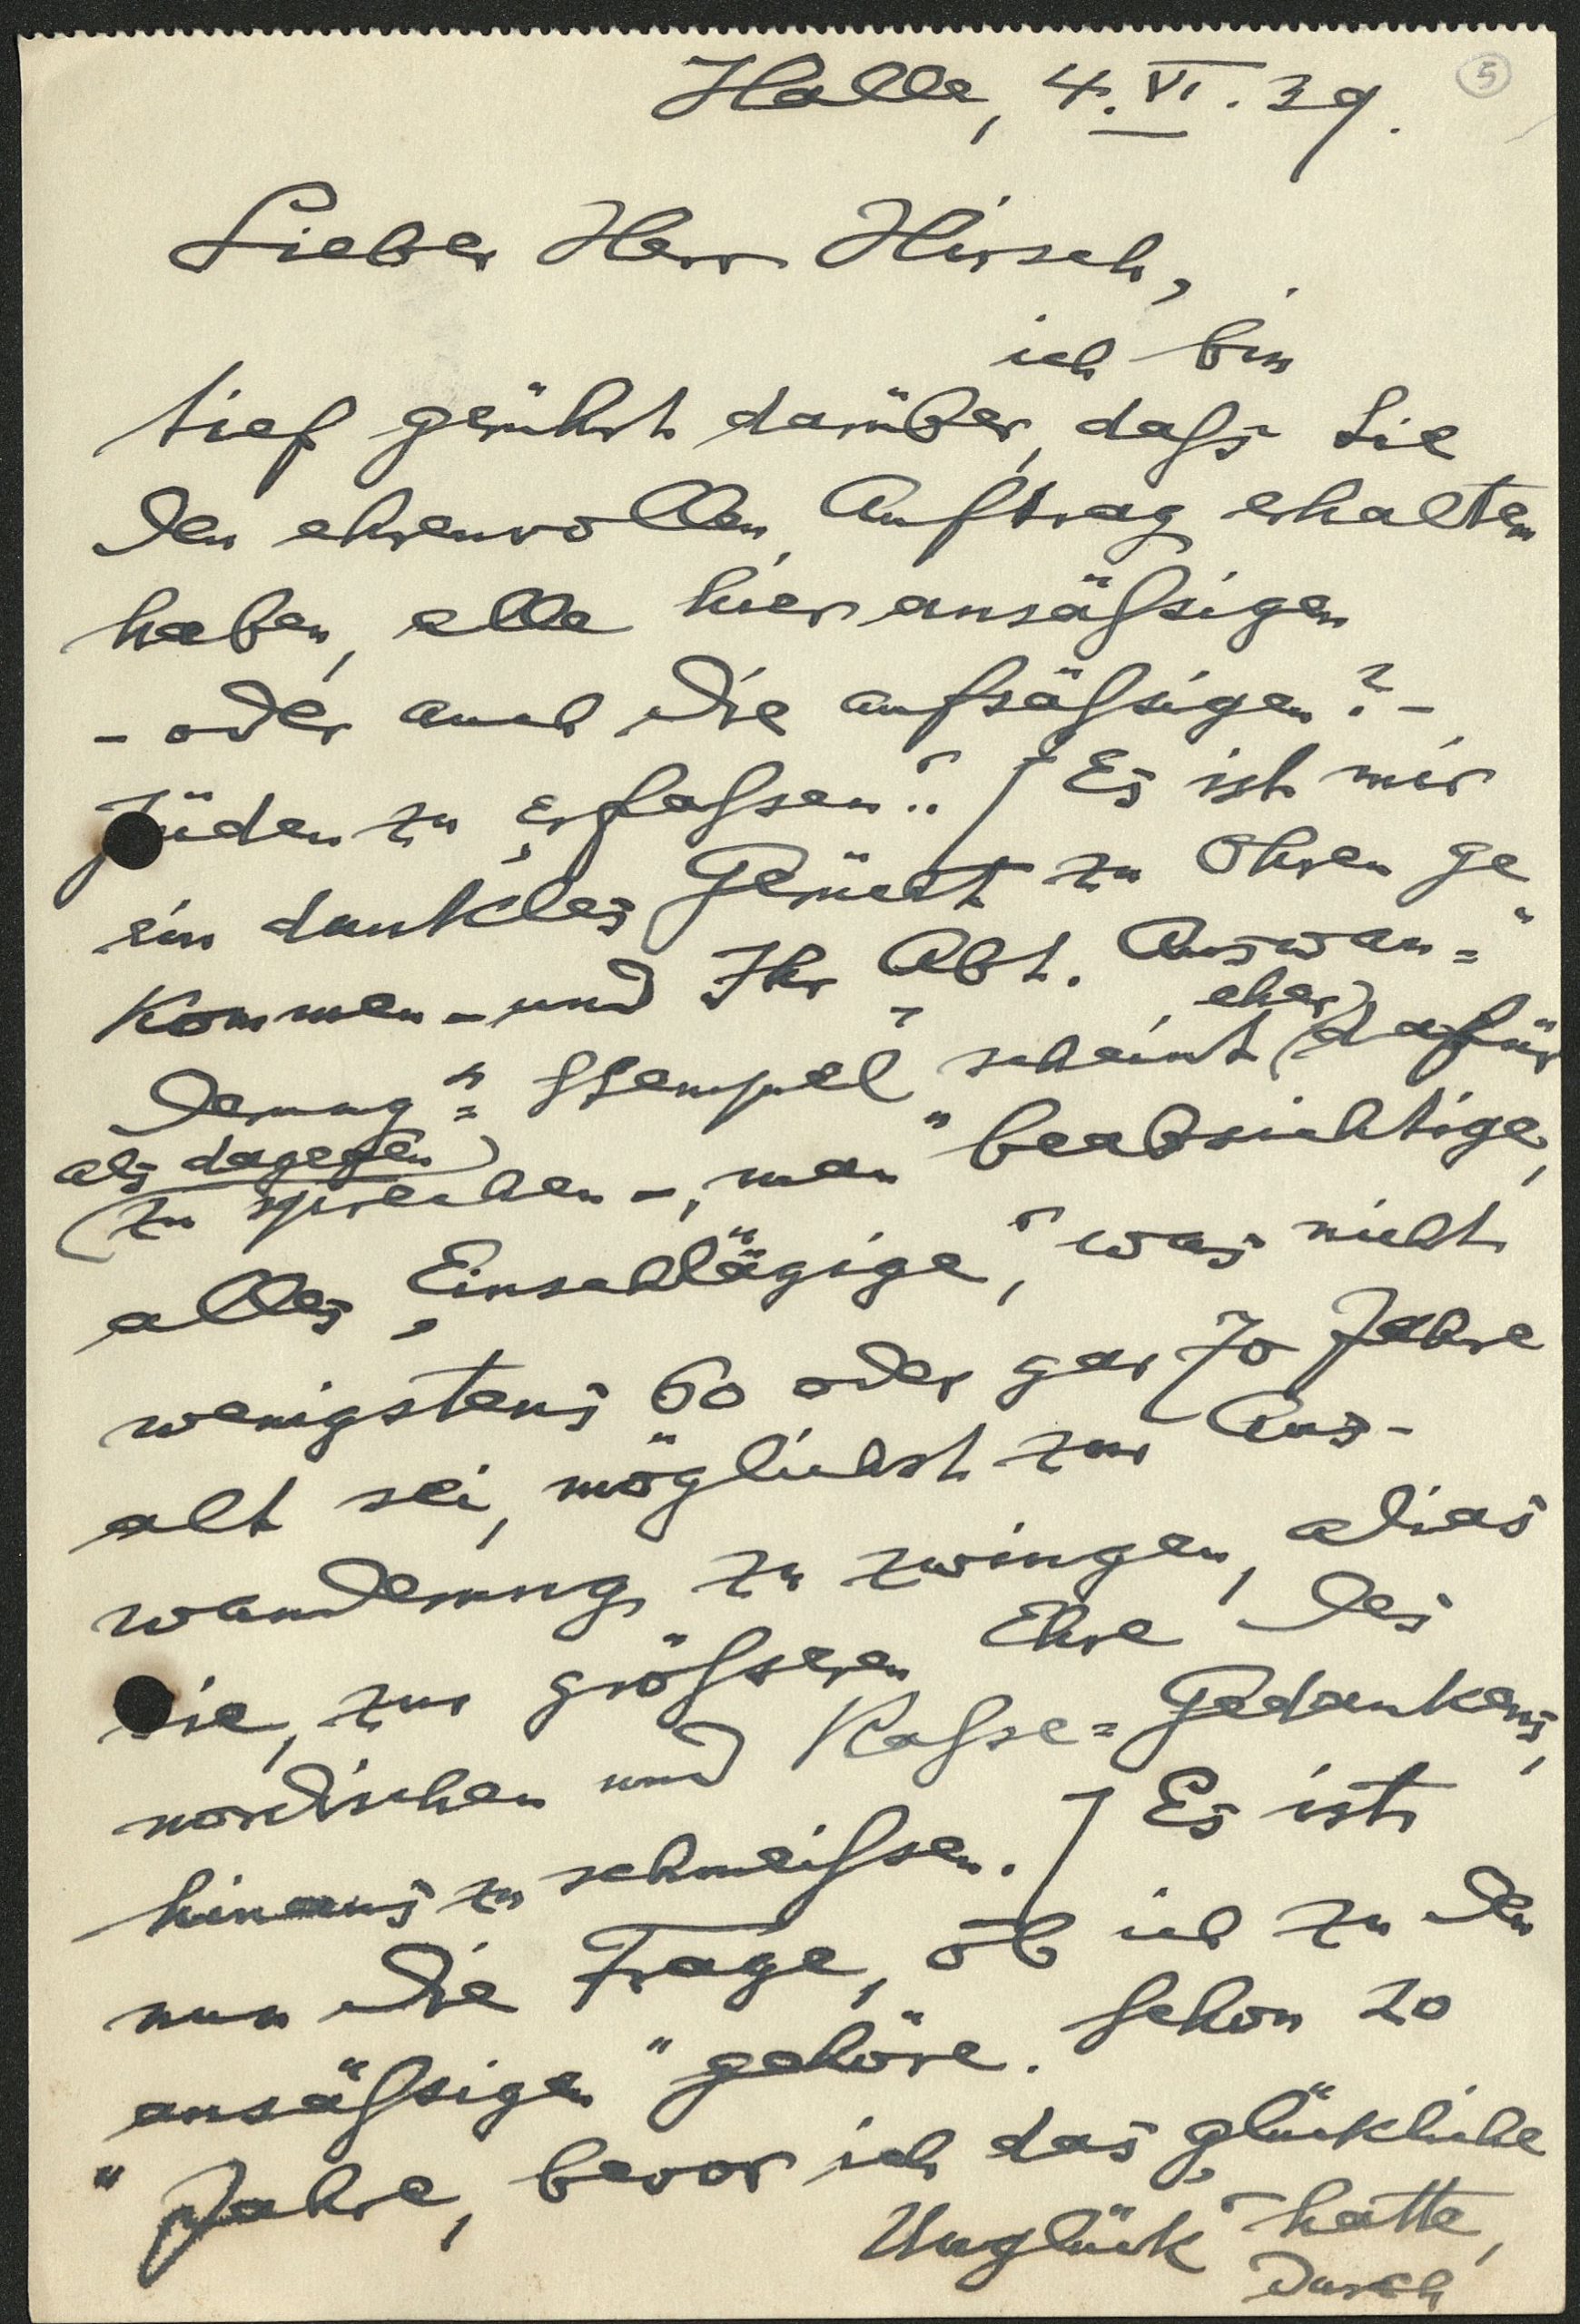 5
Halle, 4. VI. 39.
Lieber Herr Hirsch,
ich bin
tief gerührt darüber, daſs Sie
den ehrenvollen Auftrag erhalten
haben, alle hier ansäſsigen
- oder auch die aufsäſsigen? -
Jüden zu „erfaſsen“. Es ist mir
ein dunkles Gerücht zu Ohren ge
kommen - und Ihr „Abt. Auswan=
derung“= Stempel scheint eher dafür
als dagegen
zu sprechen -, man beabsichtige,
alles „Einschlägige“, was nicht
wenigstens 60 oder gar 70 Jahre
alt sei, möglichst zur Aus-
wanderung zu zwingen, alias
sie, zur gröſseren Ehre des
nordischen und Raſse=Gedankens,
hinaus zu schmeiſsen. Es ist
nun die Frage, ob ich zu den
„ansäſsigen“ gehöre. Schon 20
Jahre, bevor ich das „glückliche
Unglück“ hatte,
durch